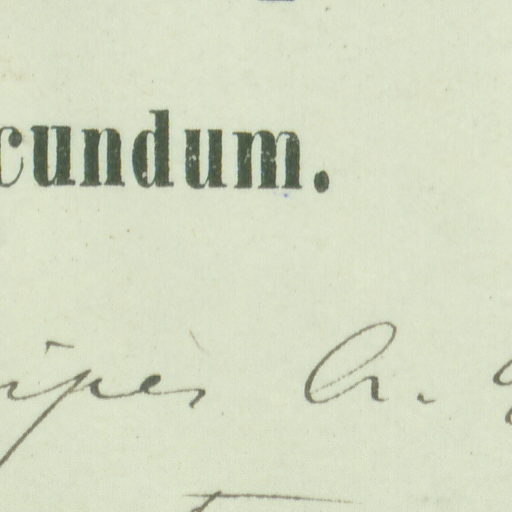 cundum.
ipes A.